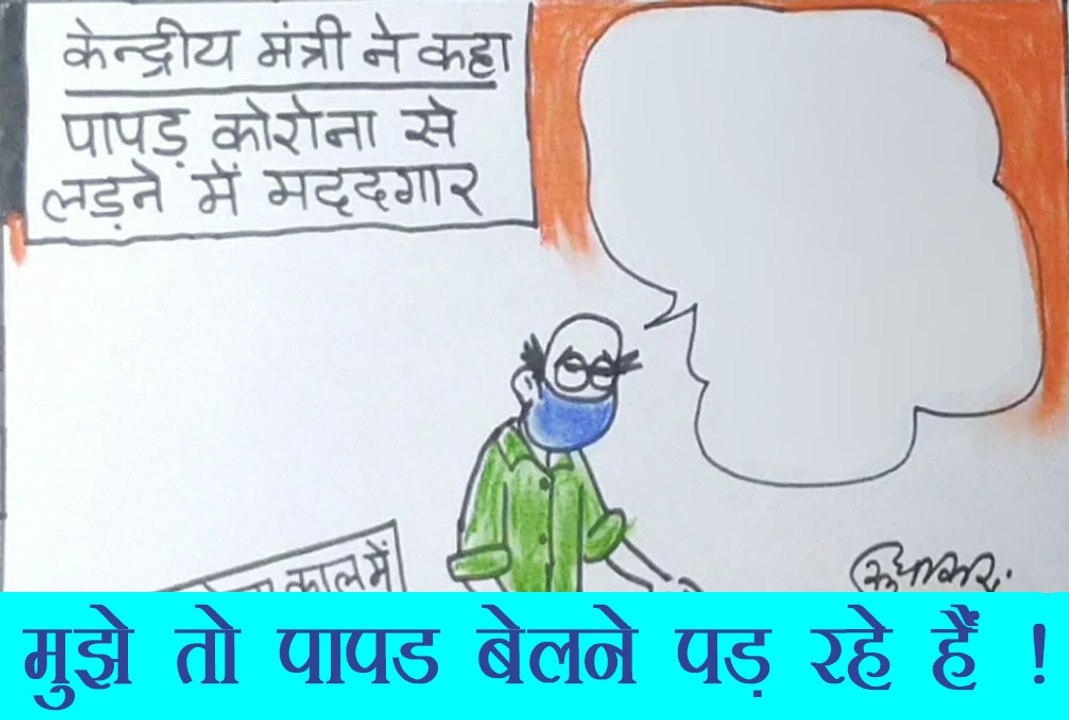 केन्द्रीय मंत्री ने कहा
पापड़ कोरोना से
लड़ने में मददगार
काल में
सुधाकर
मुझे तो पापड बेलने पड़ रहे हैं !